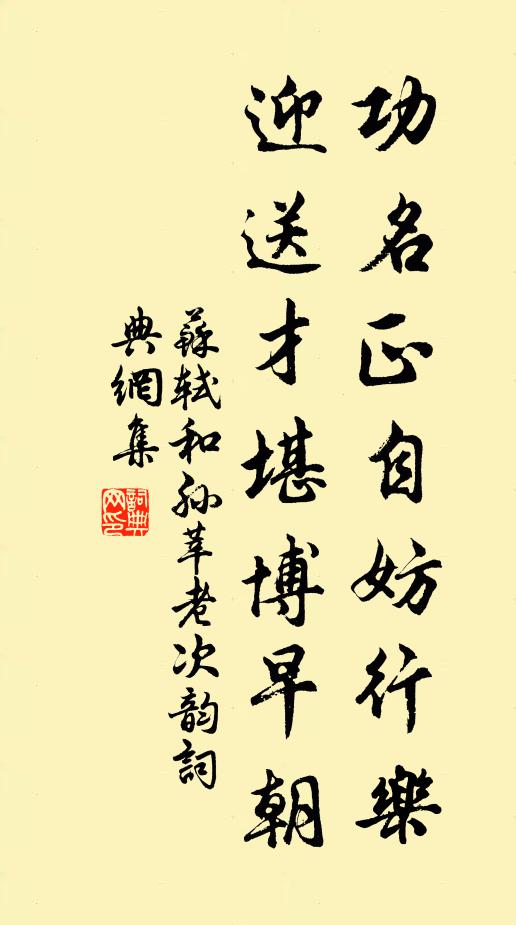 功名正自妨行樂
迎送才堪博早朝
蘇軾和孫莘老次韵詞
典網集
詞典网印